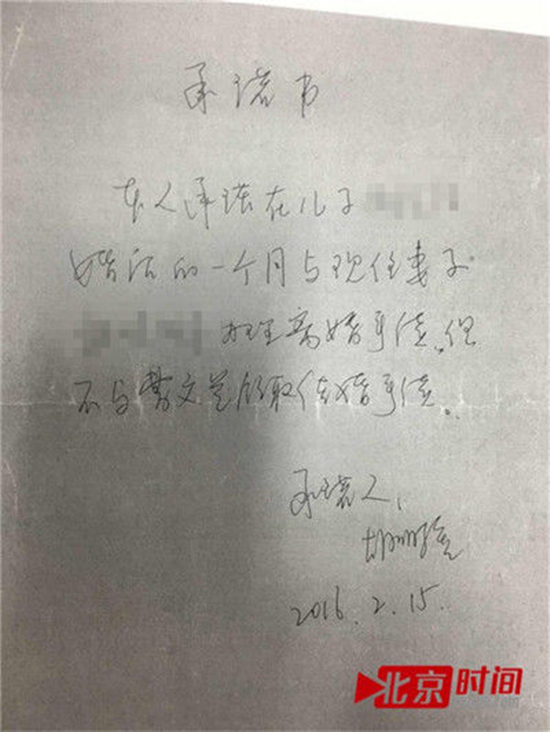 承诺书
本人承诺在儿子
婚后的一个月与现任妻子
办理离婚手续,但
不与曹文兰领取结婚手续.
承诺人,
2016.2.15.
北京时间